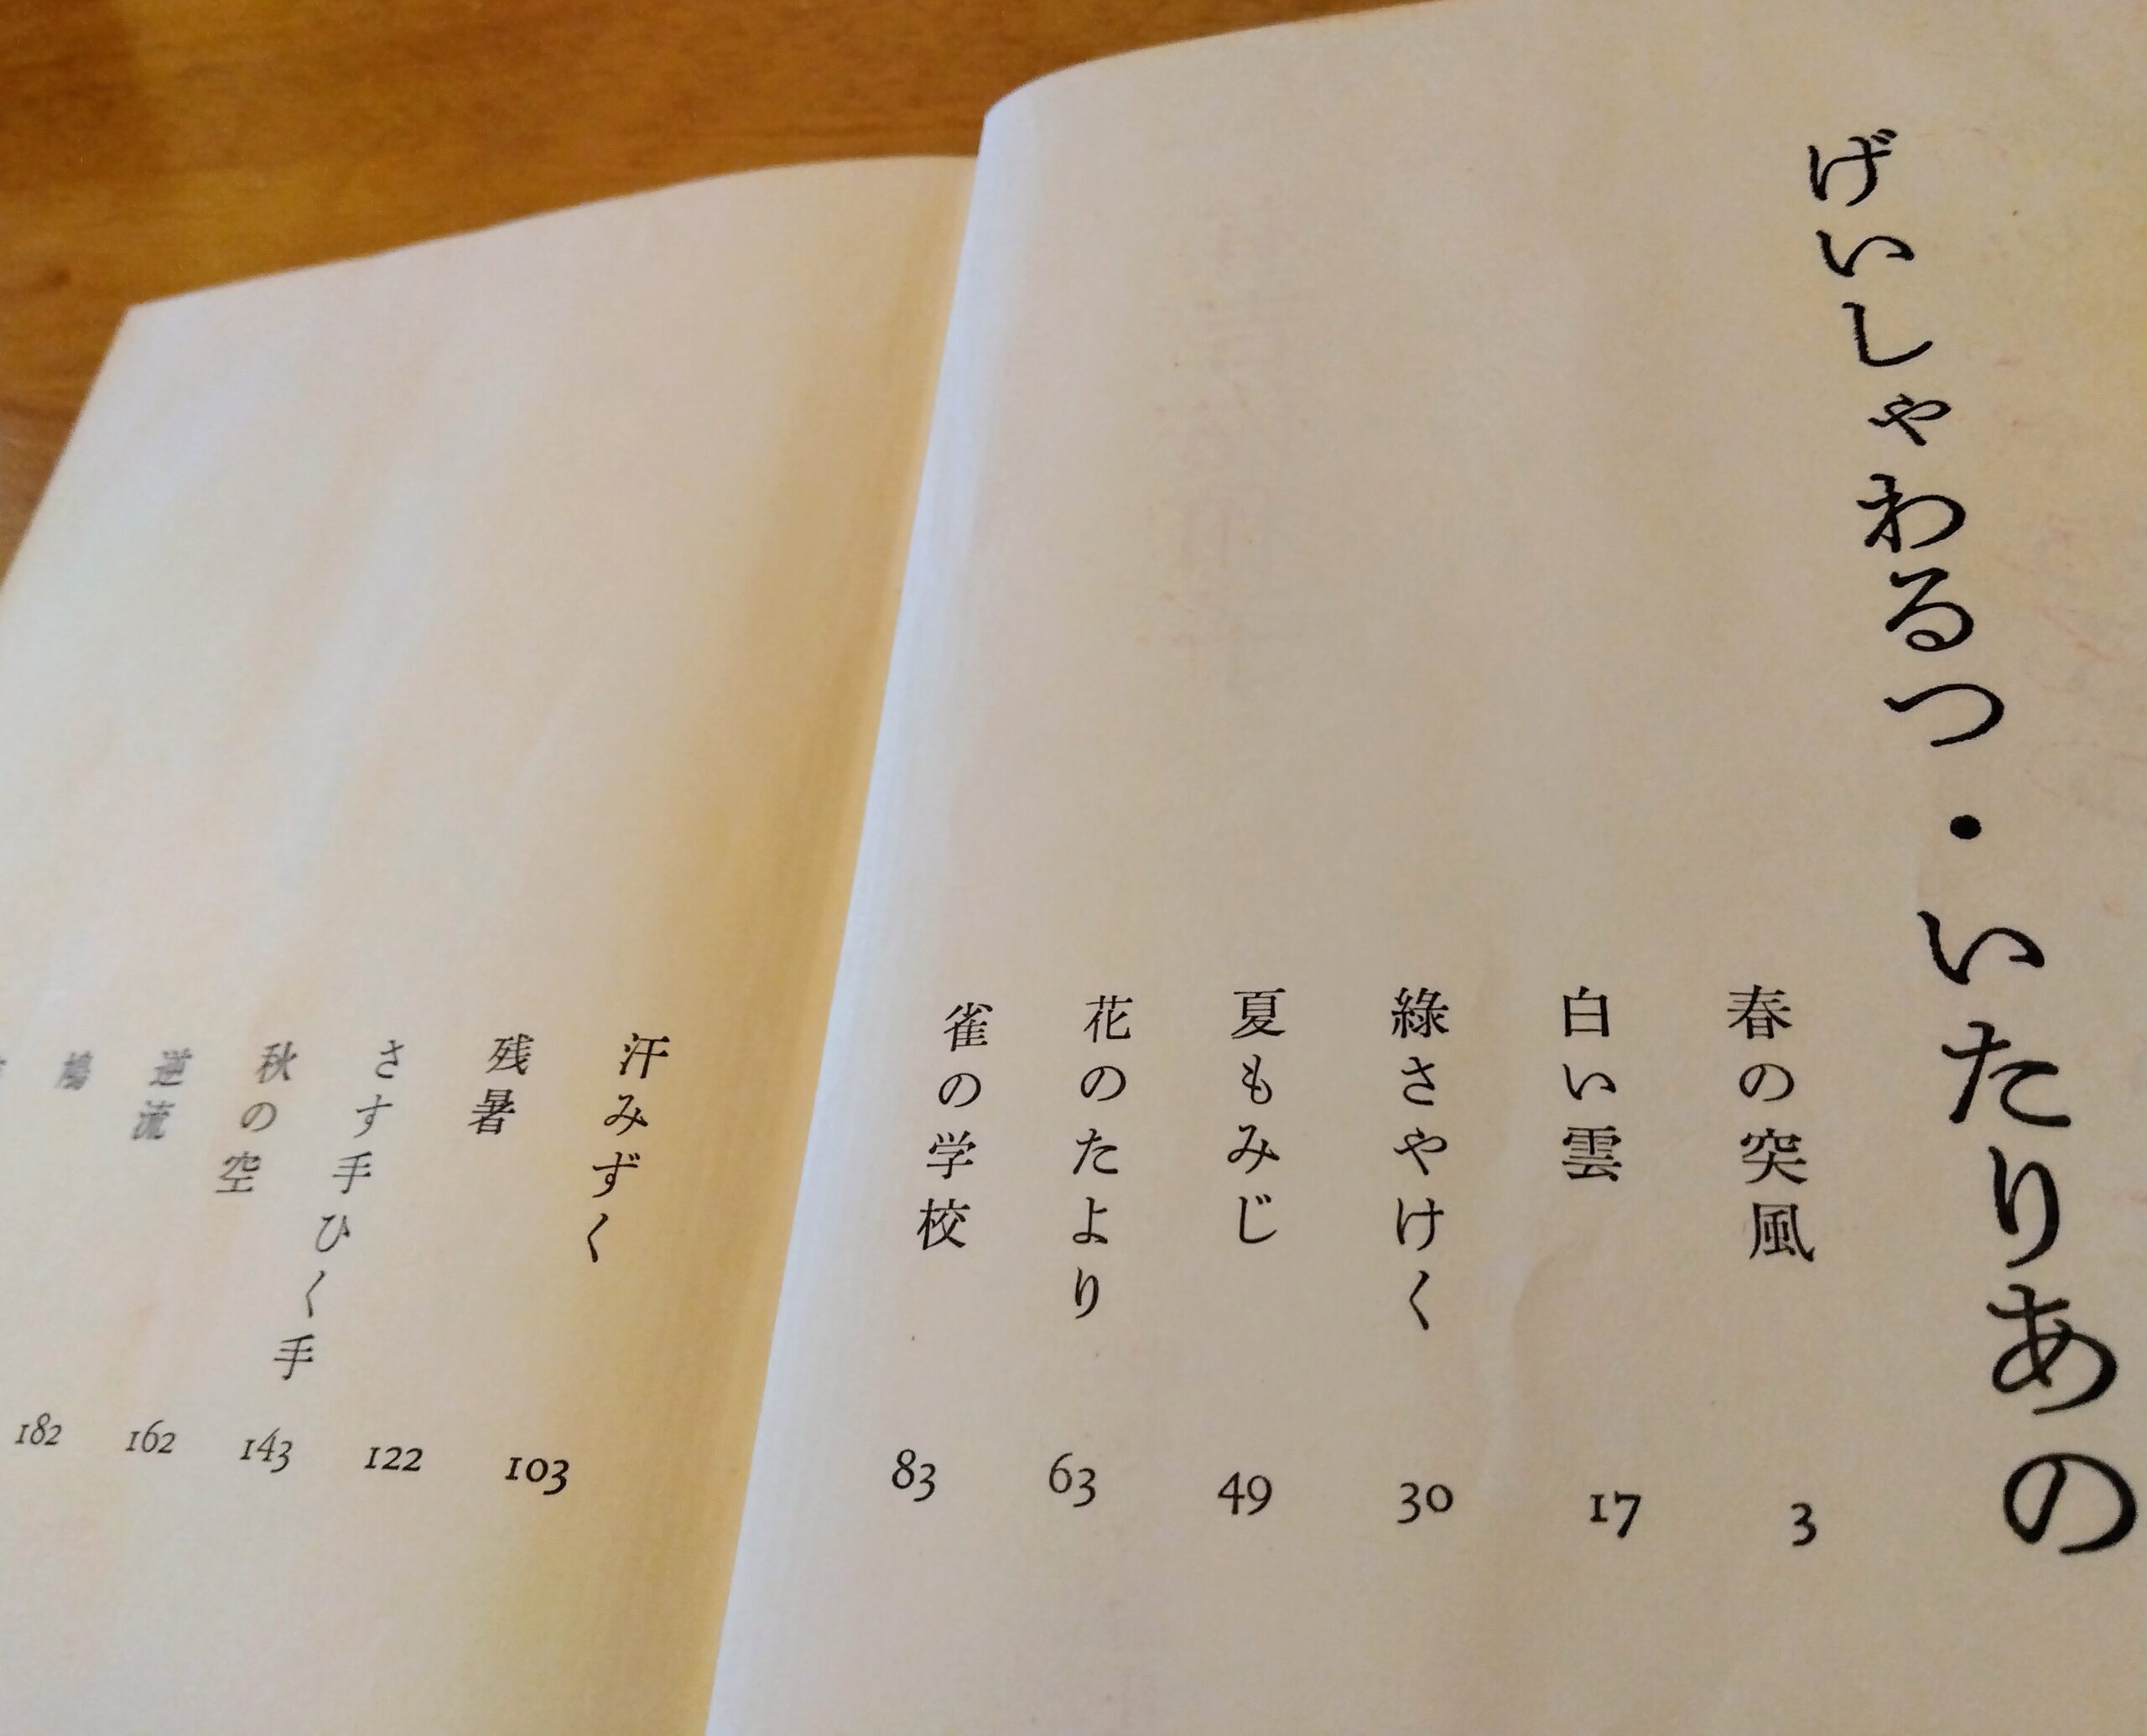 げいしゃわるつ・いたりあの
春の突風 3
白い雲 17
綠さやけく 30
夏もみじ 49
花のたより 63
雀の学校 83
汗みずく 103
残暑 122
さす手ひく手 143
秋の空 162
逆流 182